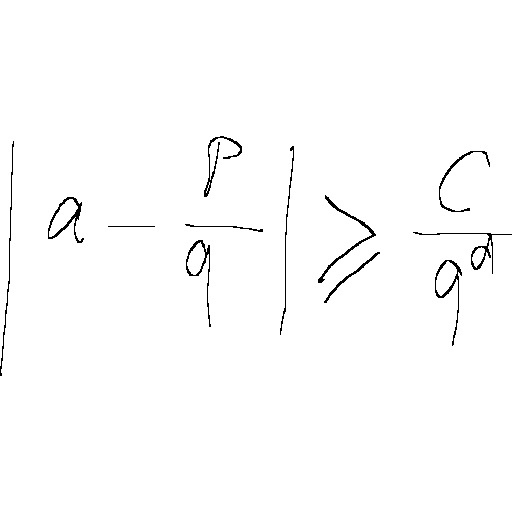 \left| a - \frac{p}{q} \right| \geqslant \frac{C}{q^d}